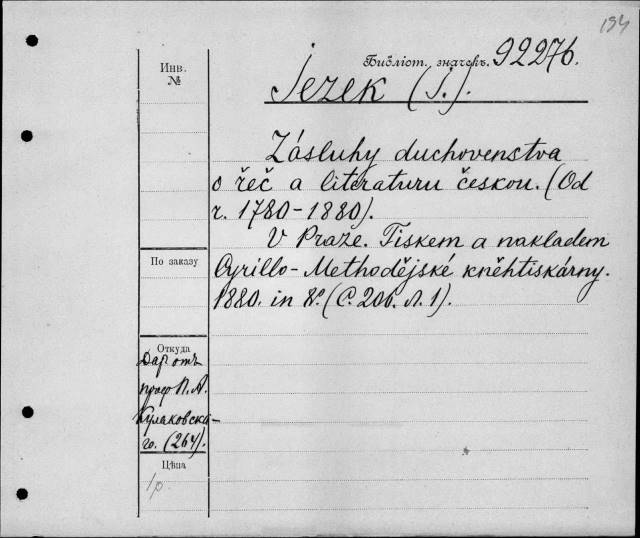 194
Библіот. значекъ. 92276.
Инв.
№
Jezek (J.).
Zásluhy duchovenstva
o řeč a literaturu českou. (Od
r. 1780-1880).
V Praze. Tiskem a nakladem
Cyrillo-Methodějské kněhtiskárny.
1880. in 8º. (С. 206. л. 1).
По заказу
Откуда
Даръ отъ
проф П. А.
Кулаковска-
го. (264).
Цѣна
1р.